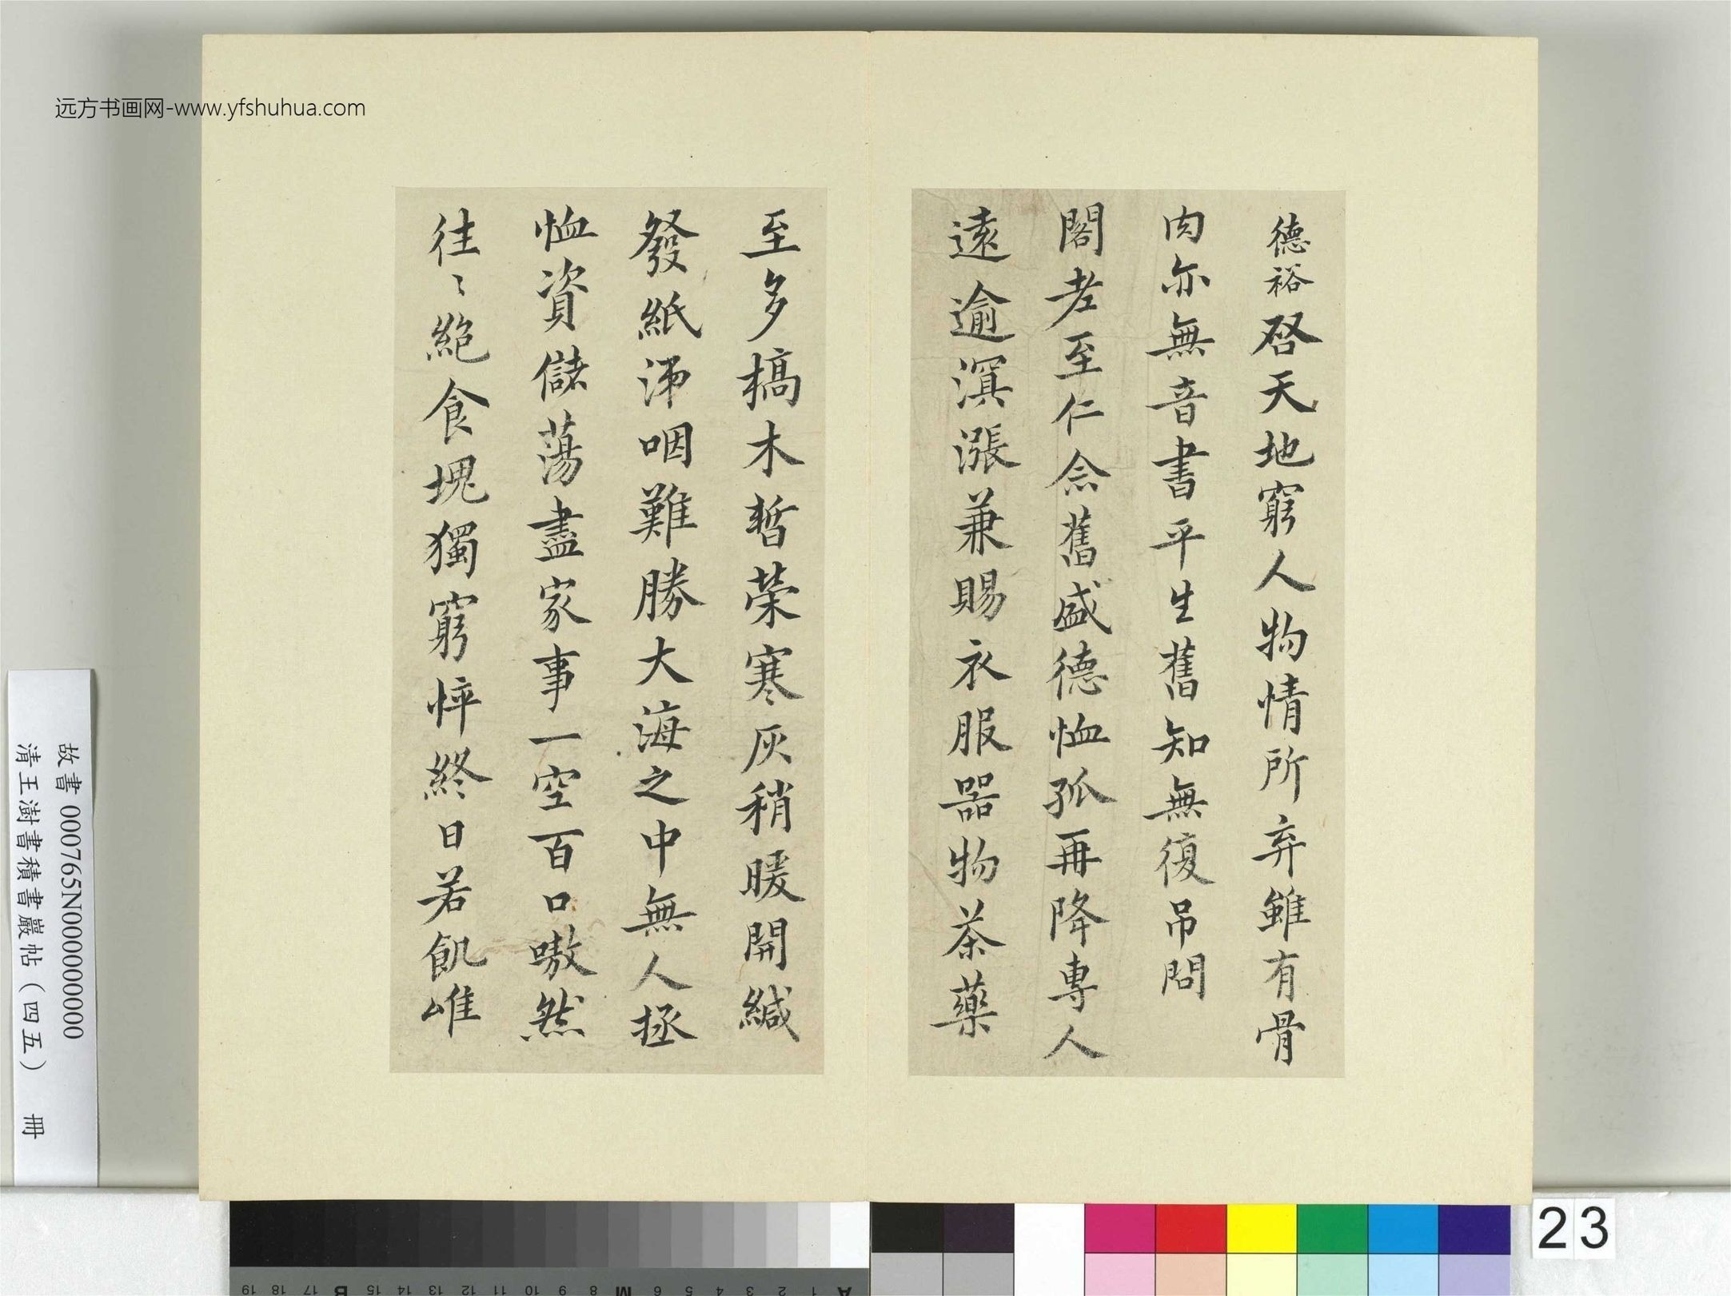 远方书画网-www.yfshuhua.com
德裕啓天地窮人物情所弃雖有骨
肉亦無音書平生舊知無復吊問
閣老至仁念舊盛德恤孤再降專人
遠逾溟漲兼賜衣服器物茶藥
至多槁木暫榮寒灰稍暖開緘
發紙涕咽難勝大海之中無人拯
恤資儲蕩盡家事一空百口嗷然
往〻絶食塊獨窮悴終日若飢唯
故書 000765N000000000
清王澍書積書巖帖（四五） 冊
23
A 1 2 3 4 5 6 M 8 9 10 11 12 13 14 15 B 17 18 19